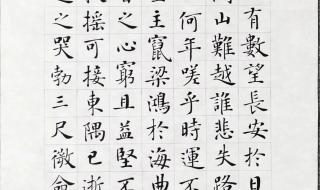 有數望長安於日
山難越誰悲失路
何年嗟乎時運不
主竄梁鴻於海曲
之心窮且益堅不
搖可接東隅已逝
之哭勃三尺微命